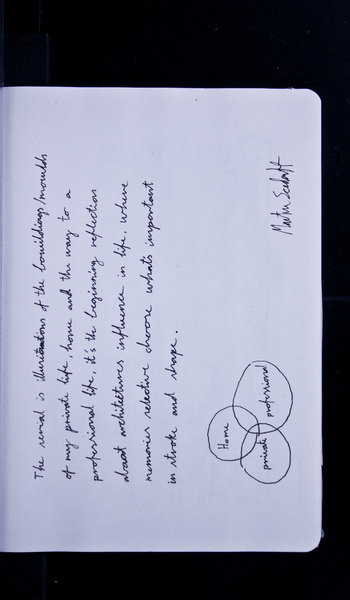 The serial is illustrations of the bouildings/moulds
of my private life, home and the way to a
professional life, it's the beginning reflection
about architectures influence in life. where
memories selective choose whats important
in stroke and shape.
Home
private
professional
Martin